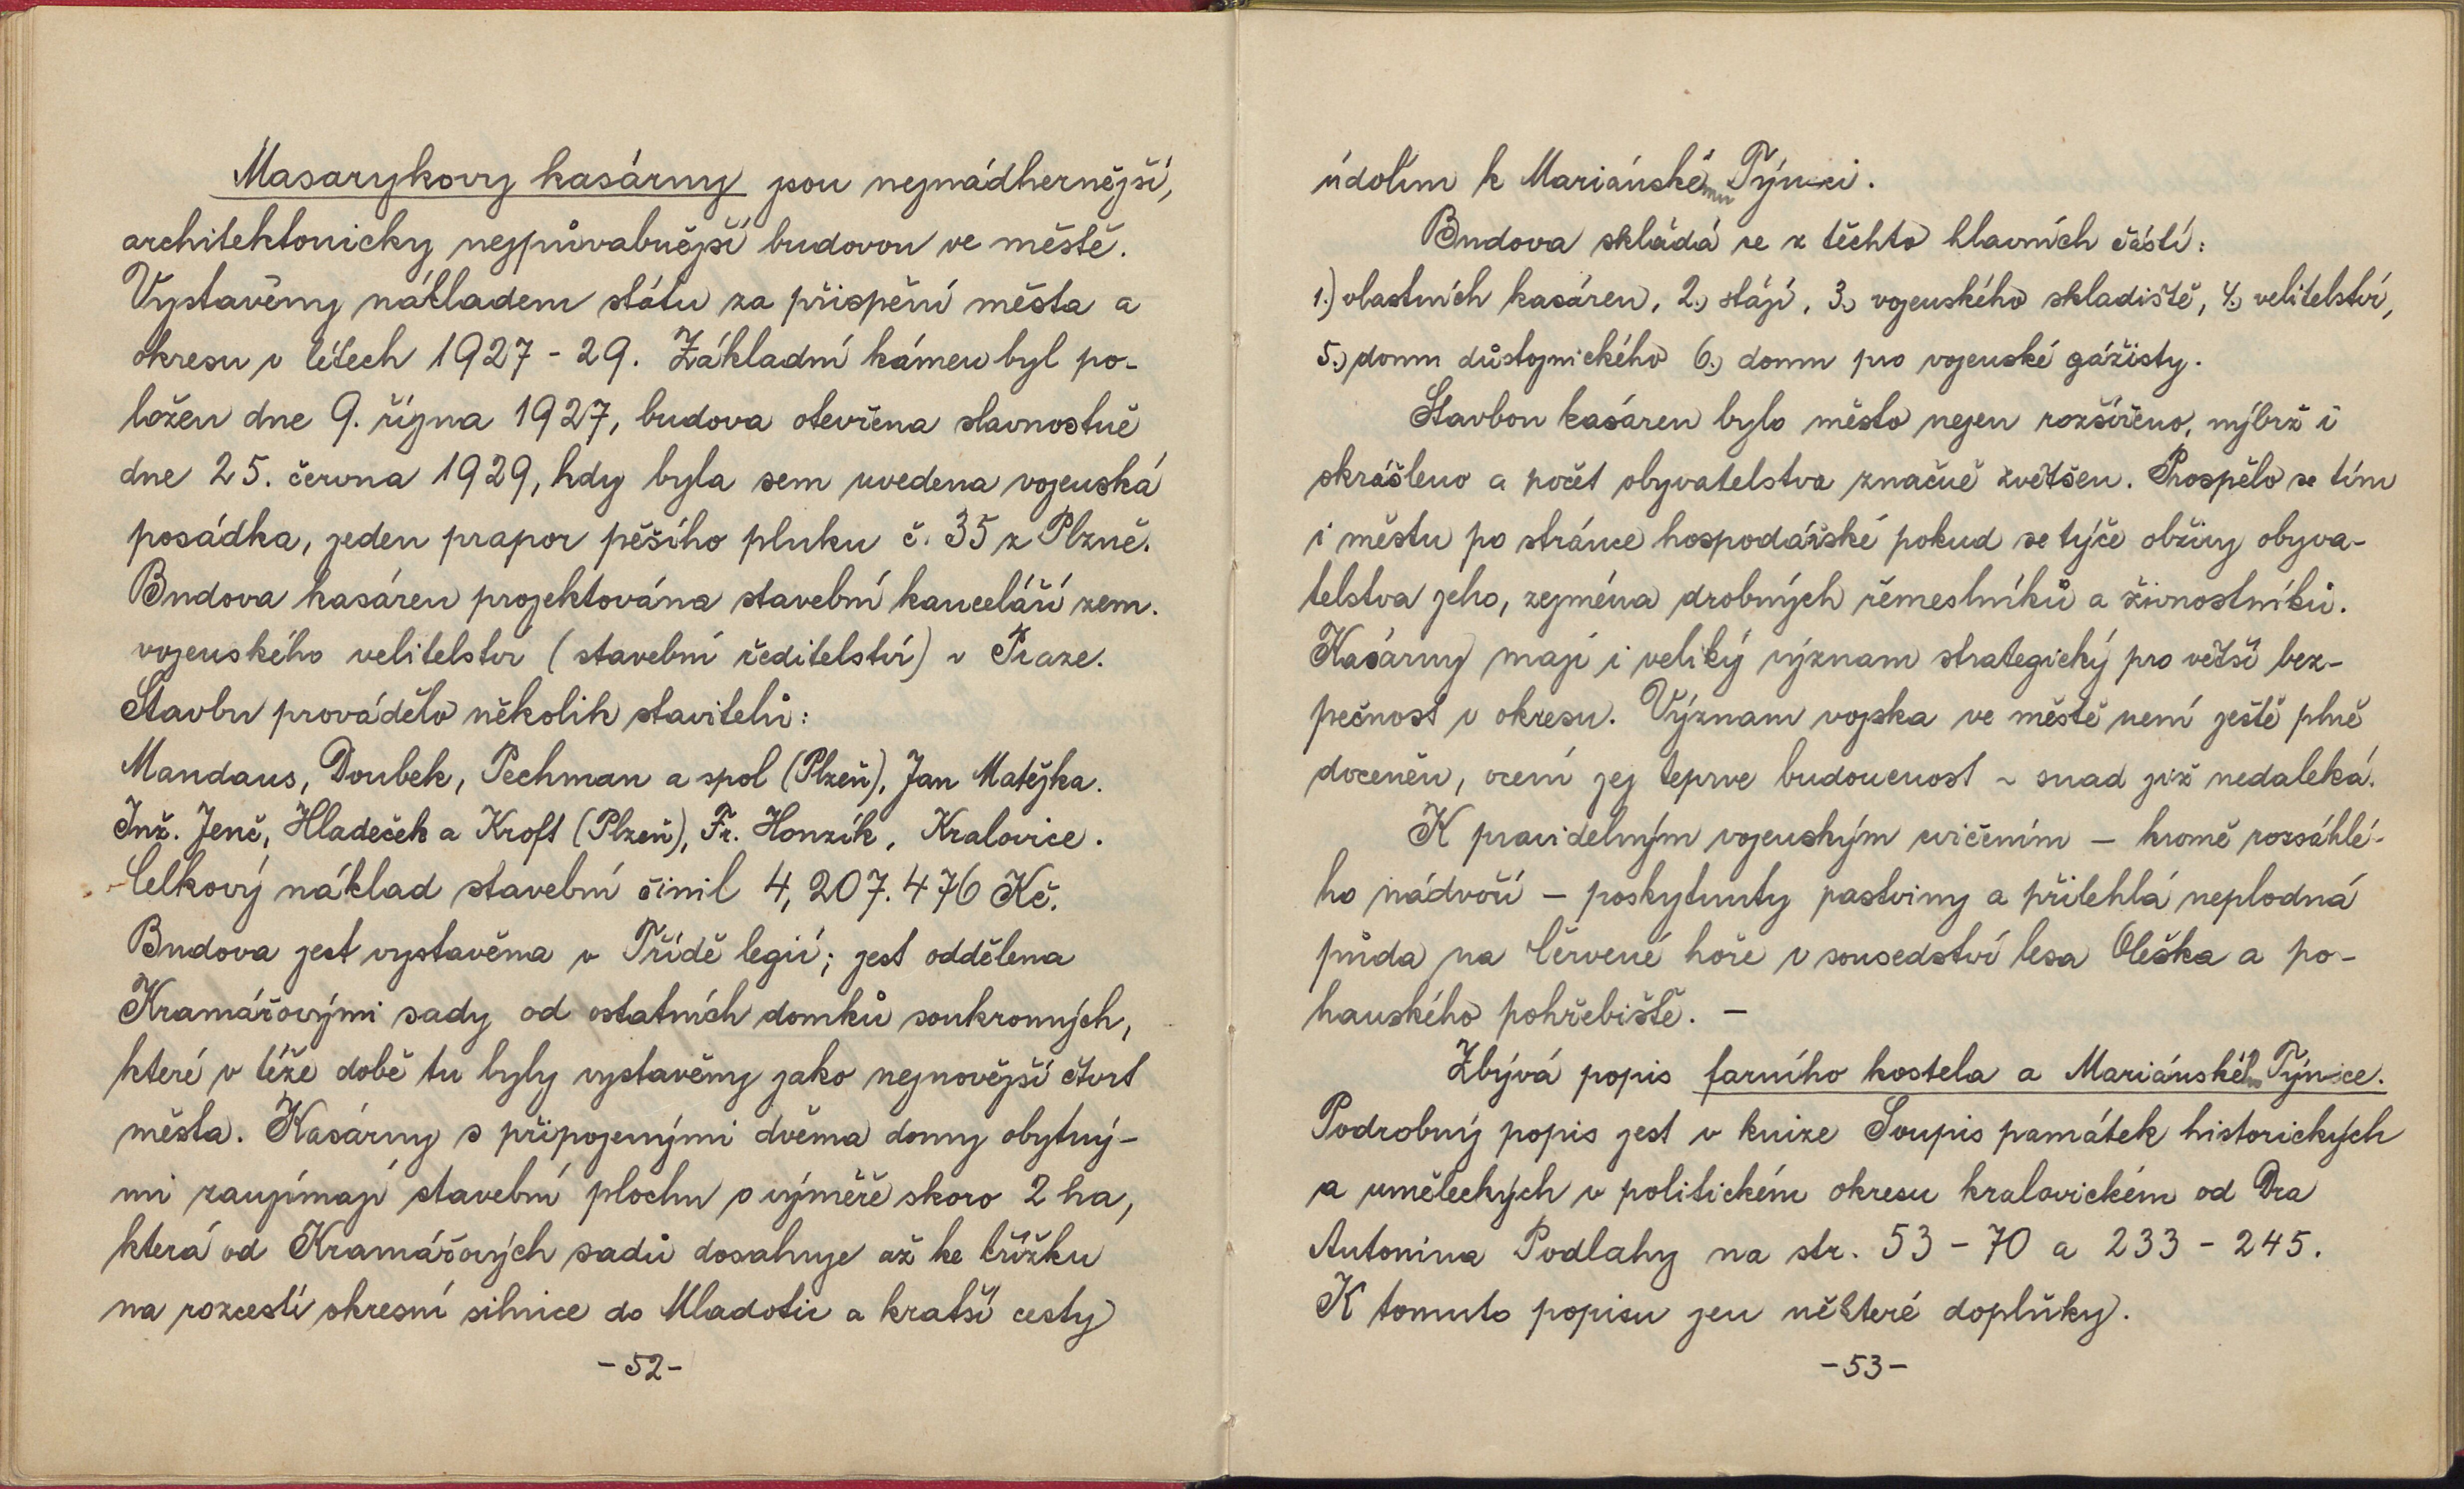 Masarykovy kasárny jsou nejnádhernější,
architektonicky nejpůvabnější budovou ve městě.
Vystavěny nákladem státu za přispění města a
okresu v létech 1927 - 29. Základní kámen byl po-
ložen dne 9. října 1927, budova otevřena slavnostně
dne 25. června 1929, kdy byla sem uvedena vojenská
posádka, jeden prapor pěšího pluku č. 35 z Plzně.
Budova kasáren projektována stavební kanceláří zem.
vojenského velitelství (stavební ředitelství) v Praze.
Stavbu provádělo několik stavitelů:
Mandaus, Doubek, Pechman a spol (Plzeň), Jan Matějka.
Inž. Jenč, Hladeček a Kroft (Plzeň), Fr. Honzík, Kralovice.
Celkový náklad stavební činil 4,207.476 Kč.
Budova jest vystavěna v Třídě legií; jest oddělena
Kramářovými sady od ostatních domků soukromých,
které v téže době tu byly vystavěny jako nejnovější čtvrt
města. Kasárny s připojenými dvěma domy obytný-
mi zaujímají stavební plochu o výměře skoro 2 ha,
která od Kramářových sadů dosahuje až ke křížku
na rozcestí okresní silnice do Mladotic a kratší cesty
-52-
údolím k Mariánskému Týnci.
Budova skládá se z těchto hlavních částí:
1.) vlastních kasáren, 2.) stájí, 3.) vojenského skladiště, 4.) velitelství,
5.) domu důstojnického 6.) domu pro vojenské gážisty.
Stavbou kasáren bylo město nejen rozšířeno, nýbrž i
skrášleno a počet obyvatelstva značně zvětšen. Prospělo se tím
i městu po stránce hospodářské pokud se týče obživy obyva-
telstva jeho, zejména drobných řemeslníků a živnostníků.
Kasárny mají i veliký význam strategický pro větší bez-
pečnost v okresu. Význam vojska ve městě není ještě plně
doceněn, ocení jej teprve budoucnost ~ snad již nedaleká.
K pravidelným vojenským cvičením - kromě rozsáhlé-
ho nádvoří - poskytnuty pastviny a přilehlá neplodná
půda na Červené hoře v sousedství lesa Oleška a po-
hanského pohřebiště. -
Zbývá popis farního kostela a Mariánského Týnice.
Podrobný popis jest v knize Soupis památek historických
a uměleckých v politickém okresu kralovickém od Dra
Antonína Podlahy na str. 53 - 70 a 233 - 245.
K tomuto popisu jen některé doplňky.
-53-